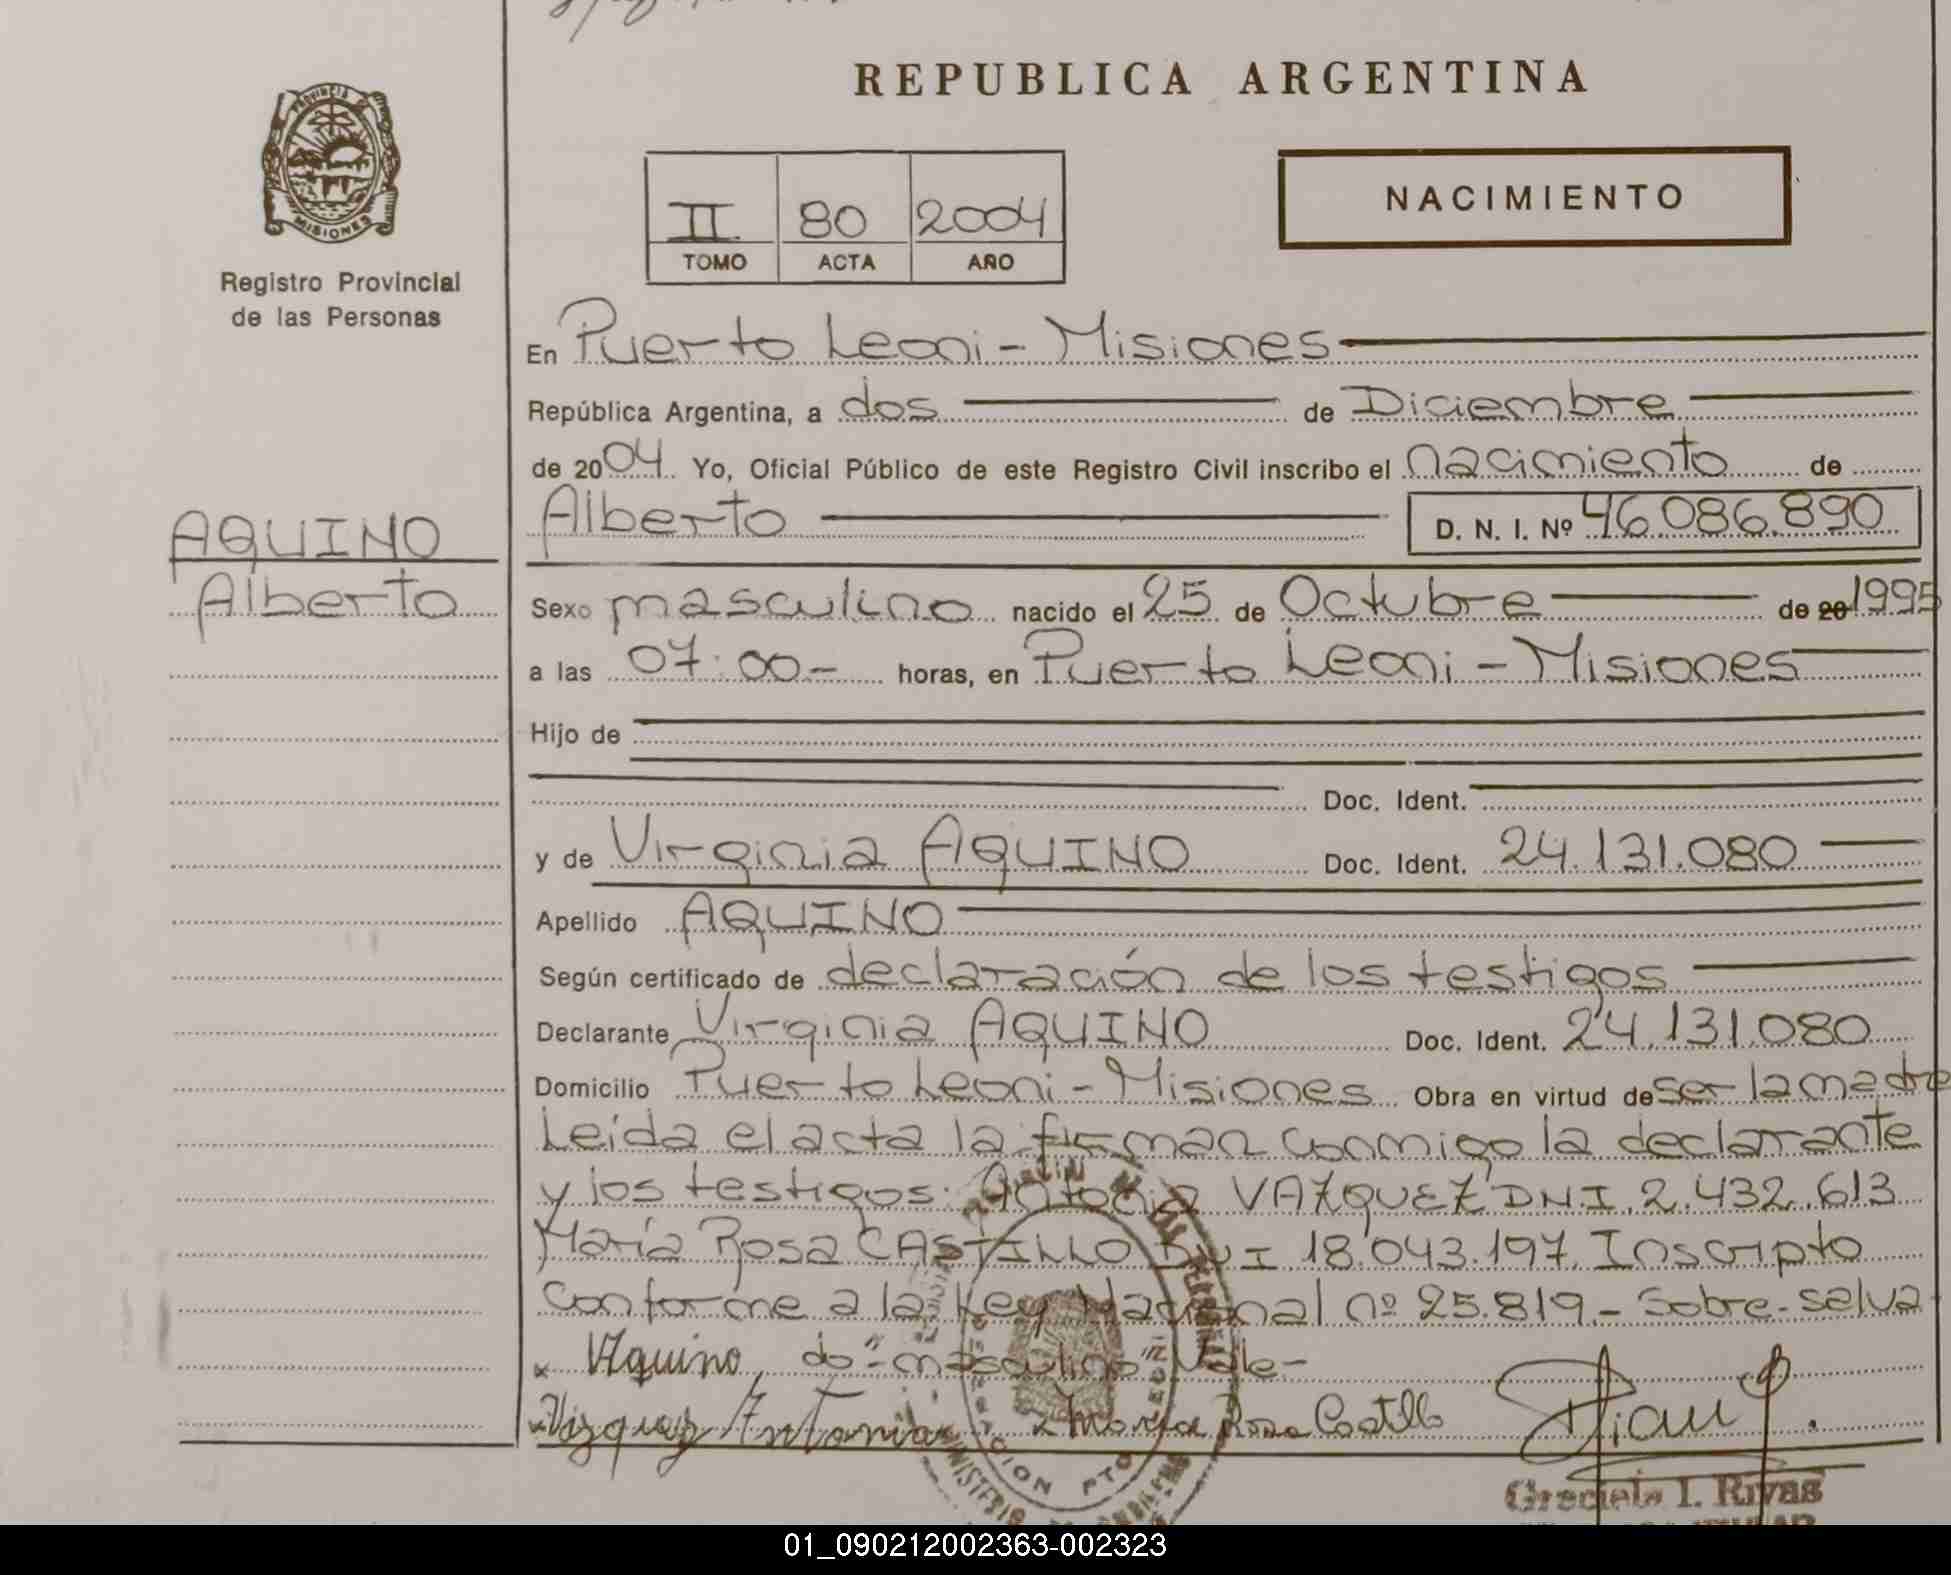 REPUBLICA ARGENTINA
PROVINCIA DE
MISIONES
Registro Provincial
de las Personas
II 80 2004
TOMO ACTA AÑO
NACIMIENTO
AQUINO
Alberto
En Puerto Leoni - Misiones
República Argentina, a dos de Diciembre
de 2004 Yo, Oficial Público de este Registro Civil inscribo el nacimiento de
Alberto D. N. I. Nº 46.086.890
Sexo masculino nacido el 25 de Octubre de 20 1995
a las 07:00- horas, en Puerto Leoni - Misiones
Hijo de
Doc. Ident.
y de Virginia AQUINO Doc. Ident. 24.131.080
Apellido AQUINO
Según certificado de declaración de los testigos
Declarante Virginia AQUINO Doc. Ident. 24.131.080
Domicilio Puerto Leoni - Misiones Obra en virtud de ser la madre
Leída el acta la firman conmigo la declarante
y los testigos: Antonia VAZQUEZ DNI. 2.432.613
María Rosa CASTILLO DNI 18.043.197. Inscripto
conforme a la Ley Nacional nº 25.819 - Sobre-salva
x Aquino do "masculino" Vale-
x Vazquez Antonia x Maria Rosa Castillo
PTO LEONI
Graciela I. Rivas
01_090212002363-002323